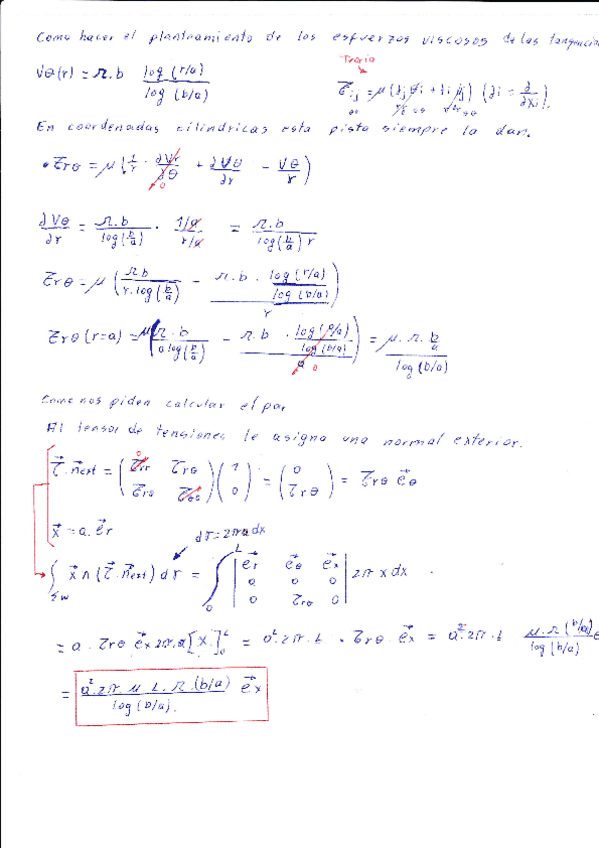 Como hacer el planteamiento de los esfuerzos viscosos de las tangencia
Teoria
Vθ(r) = Ω.b log(r/a) / log(b/a)
τij = μ(∂jϑi + ∂iϑj) (∂i = ∂/∂xi).
En coordenadas cilindricas esta pista siempre la dan.
• τrθ = μ(1/r · ∂Vr/∂θ + ∂Vθ/∂r - Vθ/r)
0
∂Vθ/∂r = Ω.b/log(b/a) · 1/a / r/a = Ω.b / log(b/a) r
τrθ = μ(Ω.b / r.log(b/a) - Ω.b · log(r/a)/log(b/a) / r)
τrθ(r=a) = μ(Ω.b / a log(b/a) - Ω.b · log(a/a)/log(b/a) / a) = μ.Ω.b/a / log(b/a)
0
Como nos piden calcular el par
Al tensor de tensiones le asigna una normal exterior.
τ⃗.n⃗ext = (τrr τrθ; τrθ τθθ)(1; 0) = (0; τrθ) = τrθ e⃗θ
x⃗ = a.e⃗r
dσ=2πa dx
∫Σw x⃗ ∧ (τ⃗.n⃗ext) dσ = ∫0L |e⃗r e⃗θ e⃗x; a 0 0; 0 τrθ 0| 2π x dx
= a · τrθ e⃗x 2π.a [x.]0L = a².2π.L · τrθ.e⃗x = a².2π.L μ.Ω(b/a) / log(b/a) e
= a².2π.μ.L.Ω.(b/a) / log(b/a). e⃗x